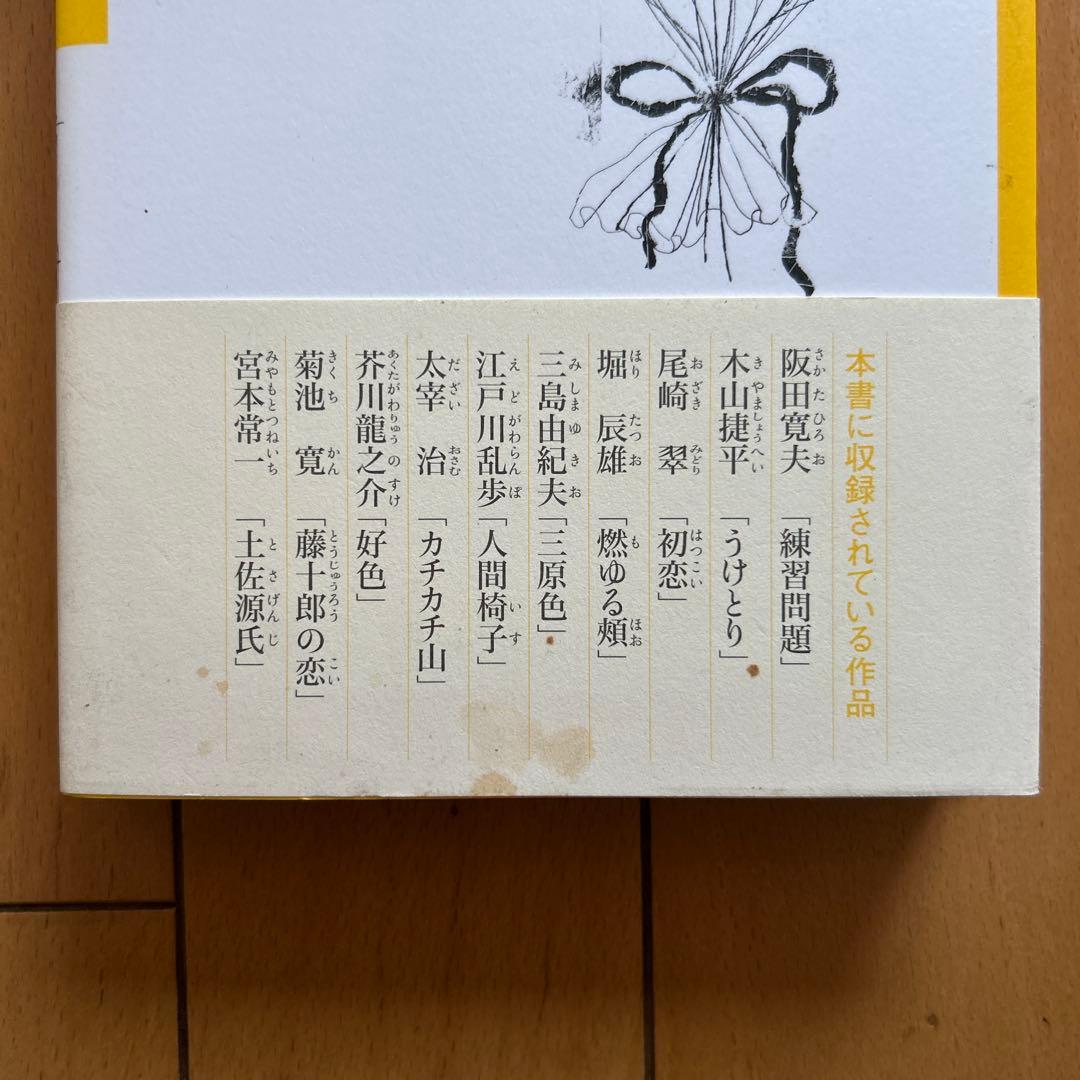 本書に収録されている作品
阪田寛夫「練習問題」
木山捷平「うけとり」
尾崎 翠「初恋」
堀 辰雄「燃ゆる頰」
三島由紀夫「三原色」
江戸川乱歩「人間椅子」
太宰 治「カチカチ山」
芥川龍之介「好色」
菊池 寛「藤十郎の恋」
宮本常一「土佐源氏」